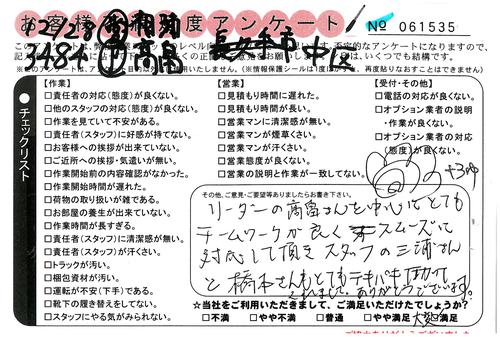 お客様満足度アンケート
No 061535
12/28
3484 高畠 中区
このアンケートは、弊
不定的なアンケートになりますので、
いつでも結構です。
チェックリスト
【作業】
□責任者の対応(態度)が良くない。
□他のスタッフの対応(態度)が良くない。
□作業を見ていて不安がある。
□責任者(スタッフ)に好感が持てない。
□お客様への挨拶が出来ていない。
□ご近所への挨拶・気遣いが無い。
□作業開始前の内容確認がなかった。
□作業開始時間が遅れた。
□荷物の取り扱いが雑である。
□お部屋の養生が出来ていない。
□作業時間が長すぎる。
□責任者(スタッフ)に清潔感が無い。
□責任者(スタッフ)が汗くさい。
□トラックが汚い。
□梱包資材が汚い。
□運転が不安(下手)である。
□靴下の履き替えをしてない。
□スタッフにやる気がみられない。
【営業】
□見積もり時間に遅れた。
□見積もり時間が長い。
□営業マンに清潔感が無い。
□営業マンが煙草くさい。
□営業マンが汗くさい。
□営業態度が良くない。
□営業の説明と作業が一致してない。
【受付・その他】
□電話の対応が良くない。
□オプション業者の説明
・作業が良くない。
□オプション業者の対応
(態度)が良くない。
その他、ご意見・ご要望等ありましたらお書き下さい。
リーダーの高畠さんを中心にとても
チームワークが良く スムーズに
対応して頂き スタッフの三浦さん
と橋本さんもとてもテキパキ動かって
くれまして、ありがとうございます。
★当社をご利用いただきまして、ご満足いただけたでしょうか？
□不満 □やや不満 □普通 □やや満足 大変 □満足